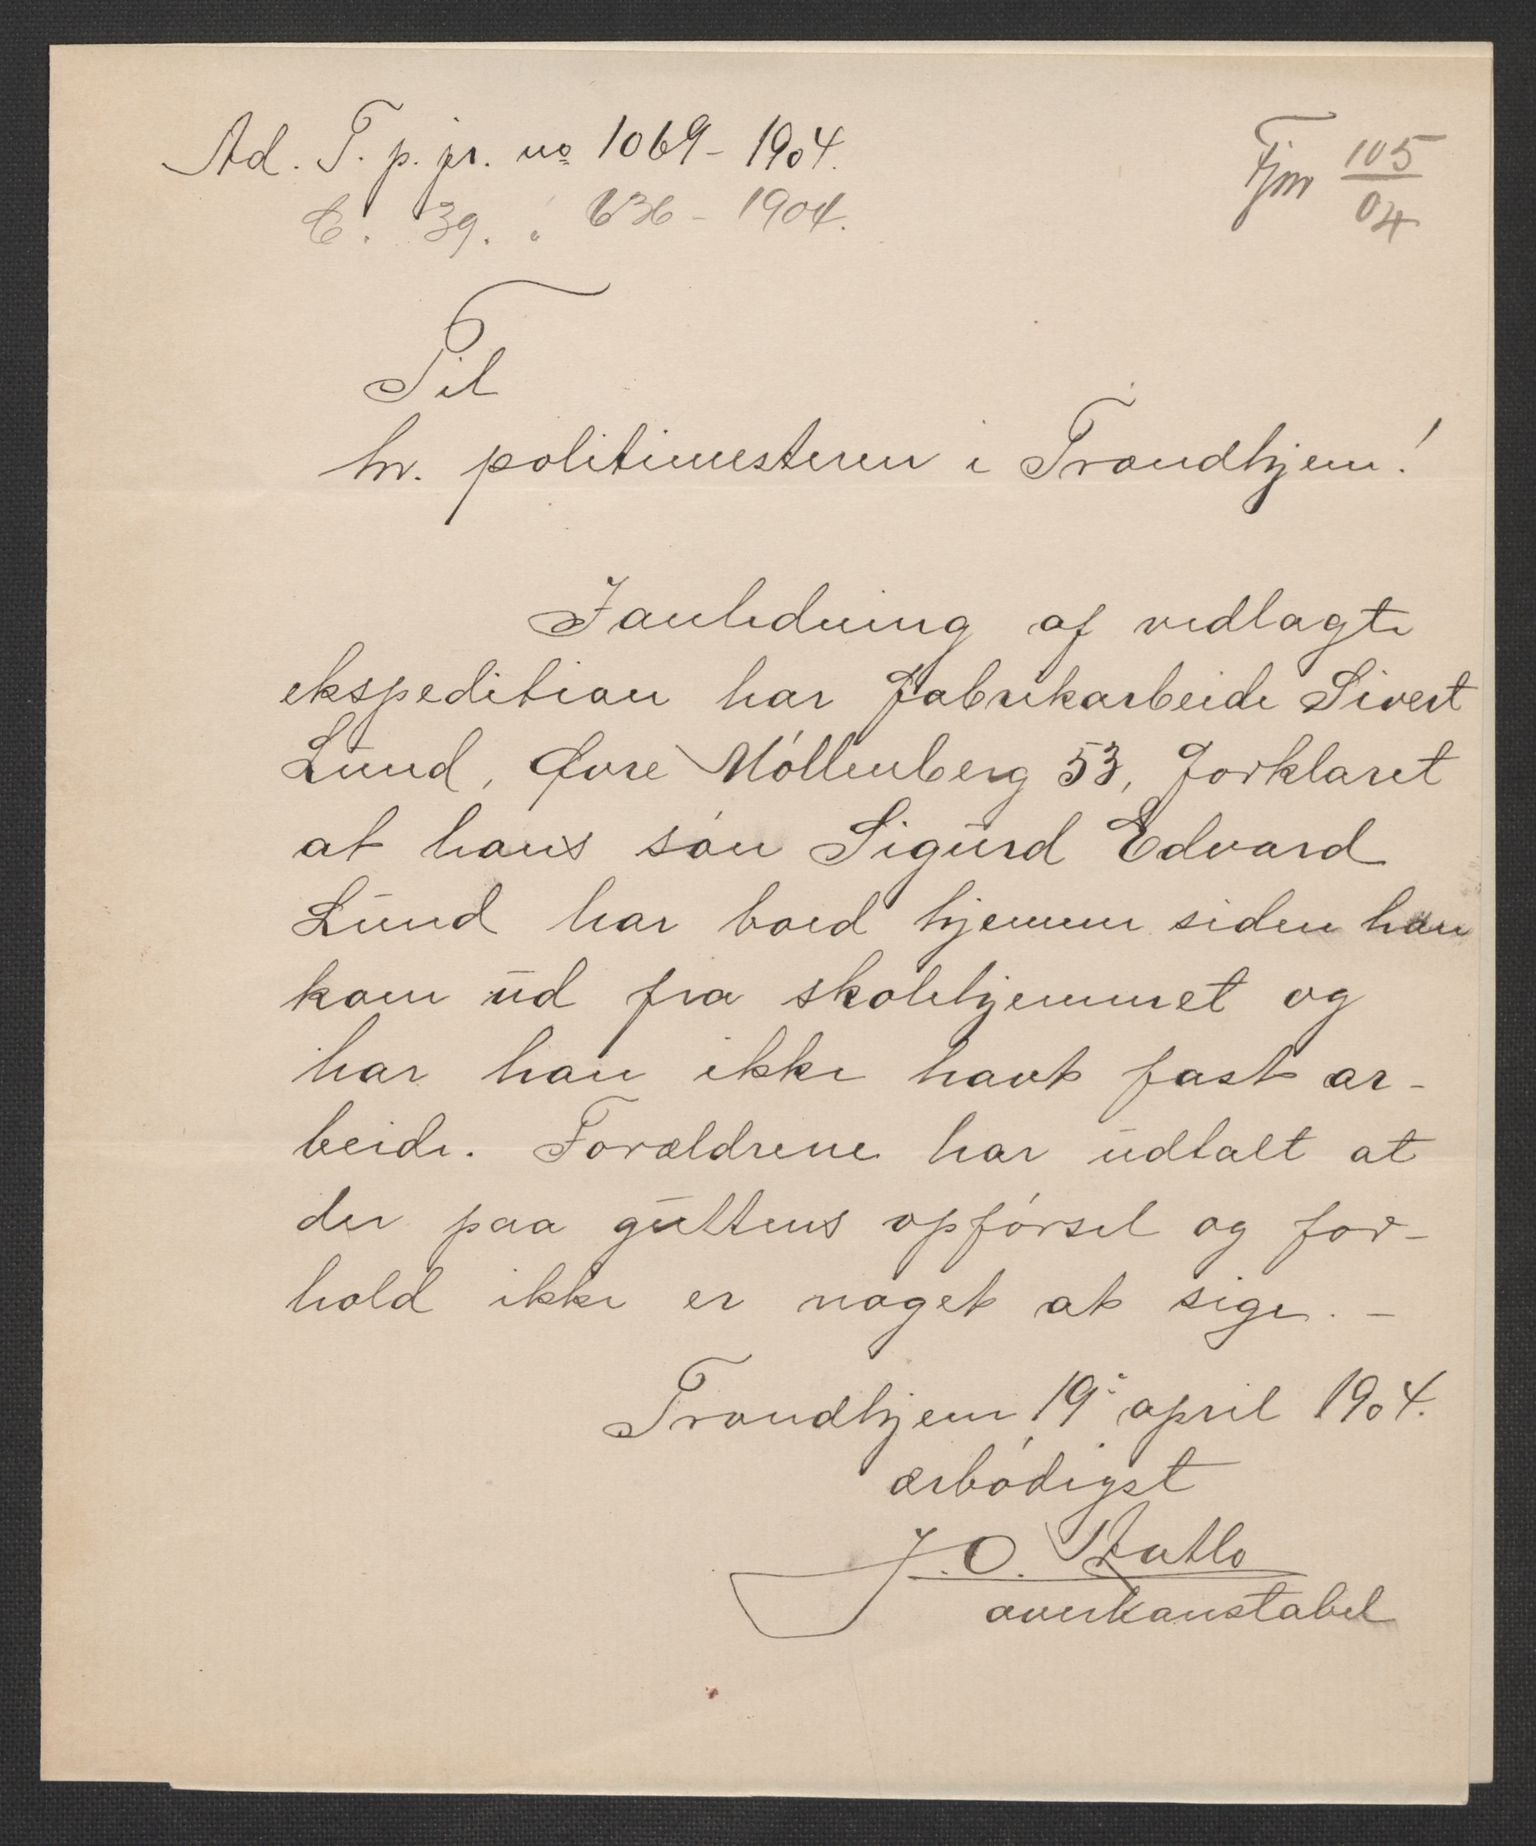 Ad. T. p. jr. no 1069 - 1904.
C. 39. " 636 - 1904.
Fjnr 105/04
Til
hr. politimesteren i Trondhjem!
I anledning af vedlagte
ekspedition har fabrikarbeide Sivert
Lund, Øvre Möllenberg 53, forklaret
at hans sön Sigurd Edvard
Lund har boed hjemme siden han
kom ud fra skolehjemmet og
har han ikke havt fast ar-
beide. Forældrene har udtalt at
der paa guttens opförsel og for-
hold ikke er noget at sige. -
Trondhjem, 19. april 1904.
ærbödigst
J. O.
overkonstabel